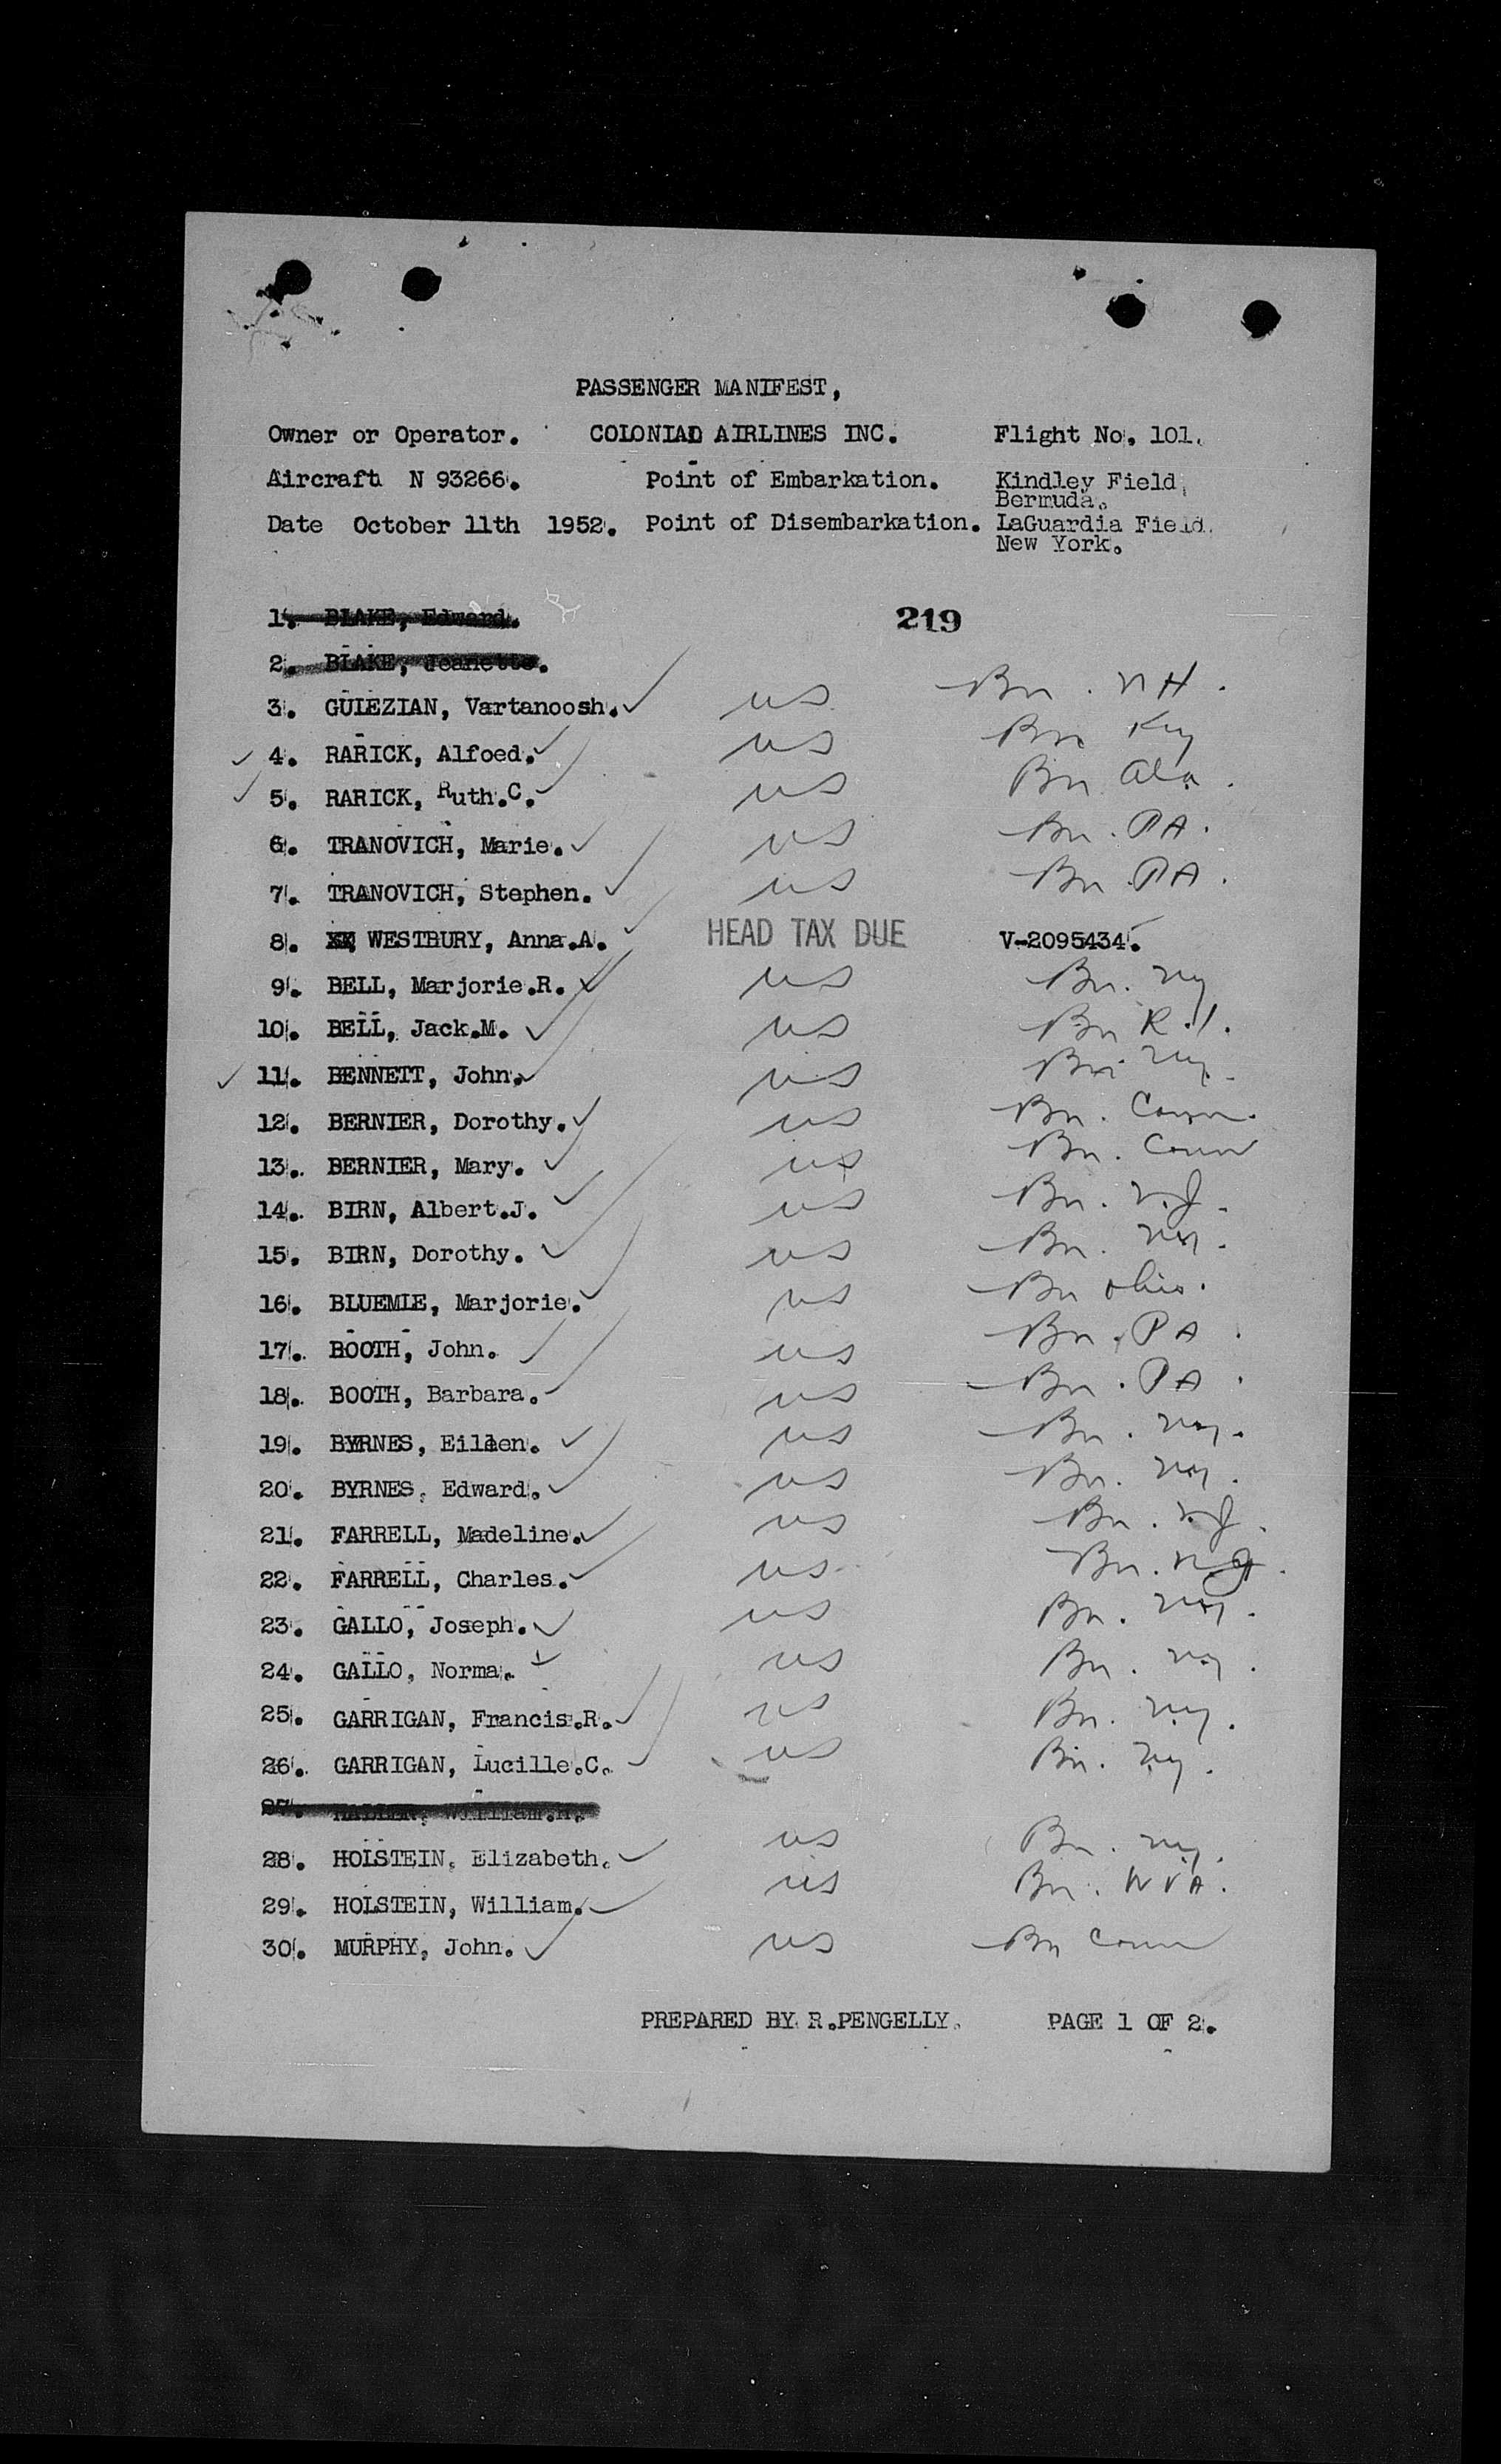 PASSENGER MANIFEST,
Owner or Operator. COLONIAL AIRLINES INC. Flight No. 101.
Aircraft N 93266. Point of Embarkation. Kindley Field,
Bermuda.
Date October 11th 1952. Point of Disembarkation. LaGuardia Field.
New York.
1. BLAKE, Edward. 219
2. BLAKE, Jeanette.
3. GULEZIAN, Vartanoosh. US Bn. NH.
4. RARICK, Alfoed. US Bn Ky
5. RARICK, Ruth.C. US Bn Ala.
6. TRANOVICH, Marie. US Bn. PA.
7. TRANOVICH, Stephen. US Bn. PA.
8. WESTBURY, Anna.A. HEAD TAX DUE V-2095434.
9. BELL, Marjorie.R. US Bn. Ny
10. BELL, Jack.M. US Bn R.I.
11. BENNETT, John. US Bn. Ny.
12. BERNIER, Dorothy. US Bn. Conn.
13. BERNIER, Mary. US Bn. Conn
14. BIRN, Albert.J. US Bn. N.J.
15. BIRN, Dorothy. US Bn. Ny.
16. BLUEMLE, Marjorie. US Bn Ohio.
17. BOOTH, John. US Bn. PA.
18. BOOTH, Barbara. US Bn. PA.
19. BYRNES, Eileen. US Bn. Ny.
20. BYRNES, Edward. US Bn. Ny.
21. FARRELL, Madeline. US Bn. N.J.
22. FARRELL, Charles. US Bn. N.J.
23. GALLO, Joseph. US Bn. Ny.
24. GALLO, Norma. US Bn. Ny.
25. GARRIGAN, Francis.R. US Bn. Ny.
26. GARRIGAN, Lucille.C. US Bn. Ny.
27. William.H.
28. HOLSTEIN, Elizabeth. US Bn. Ny.
29. HOLSTEIN, William. US Bn. W VA.
30. MURPHY, John. US Bn Conn
PREPARED BY R.PENGELLY. PAGE 1 OF 2.